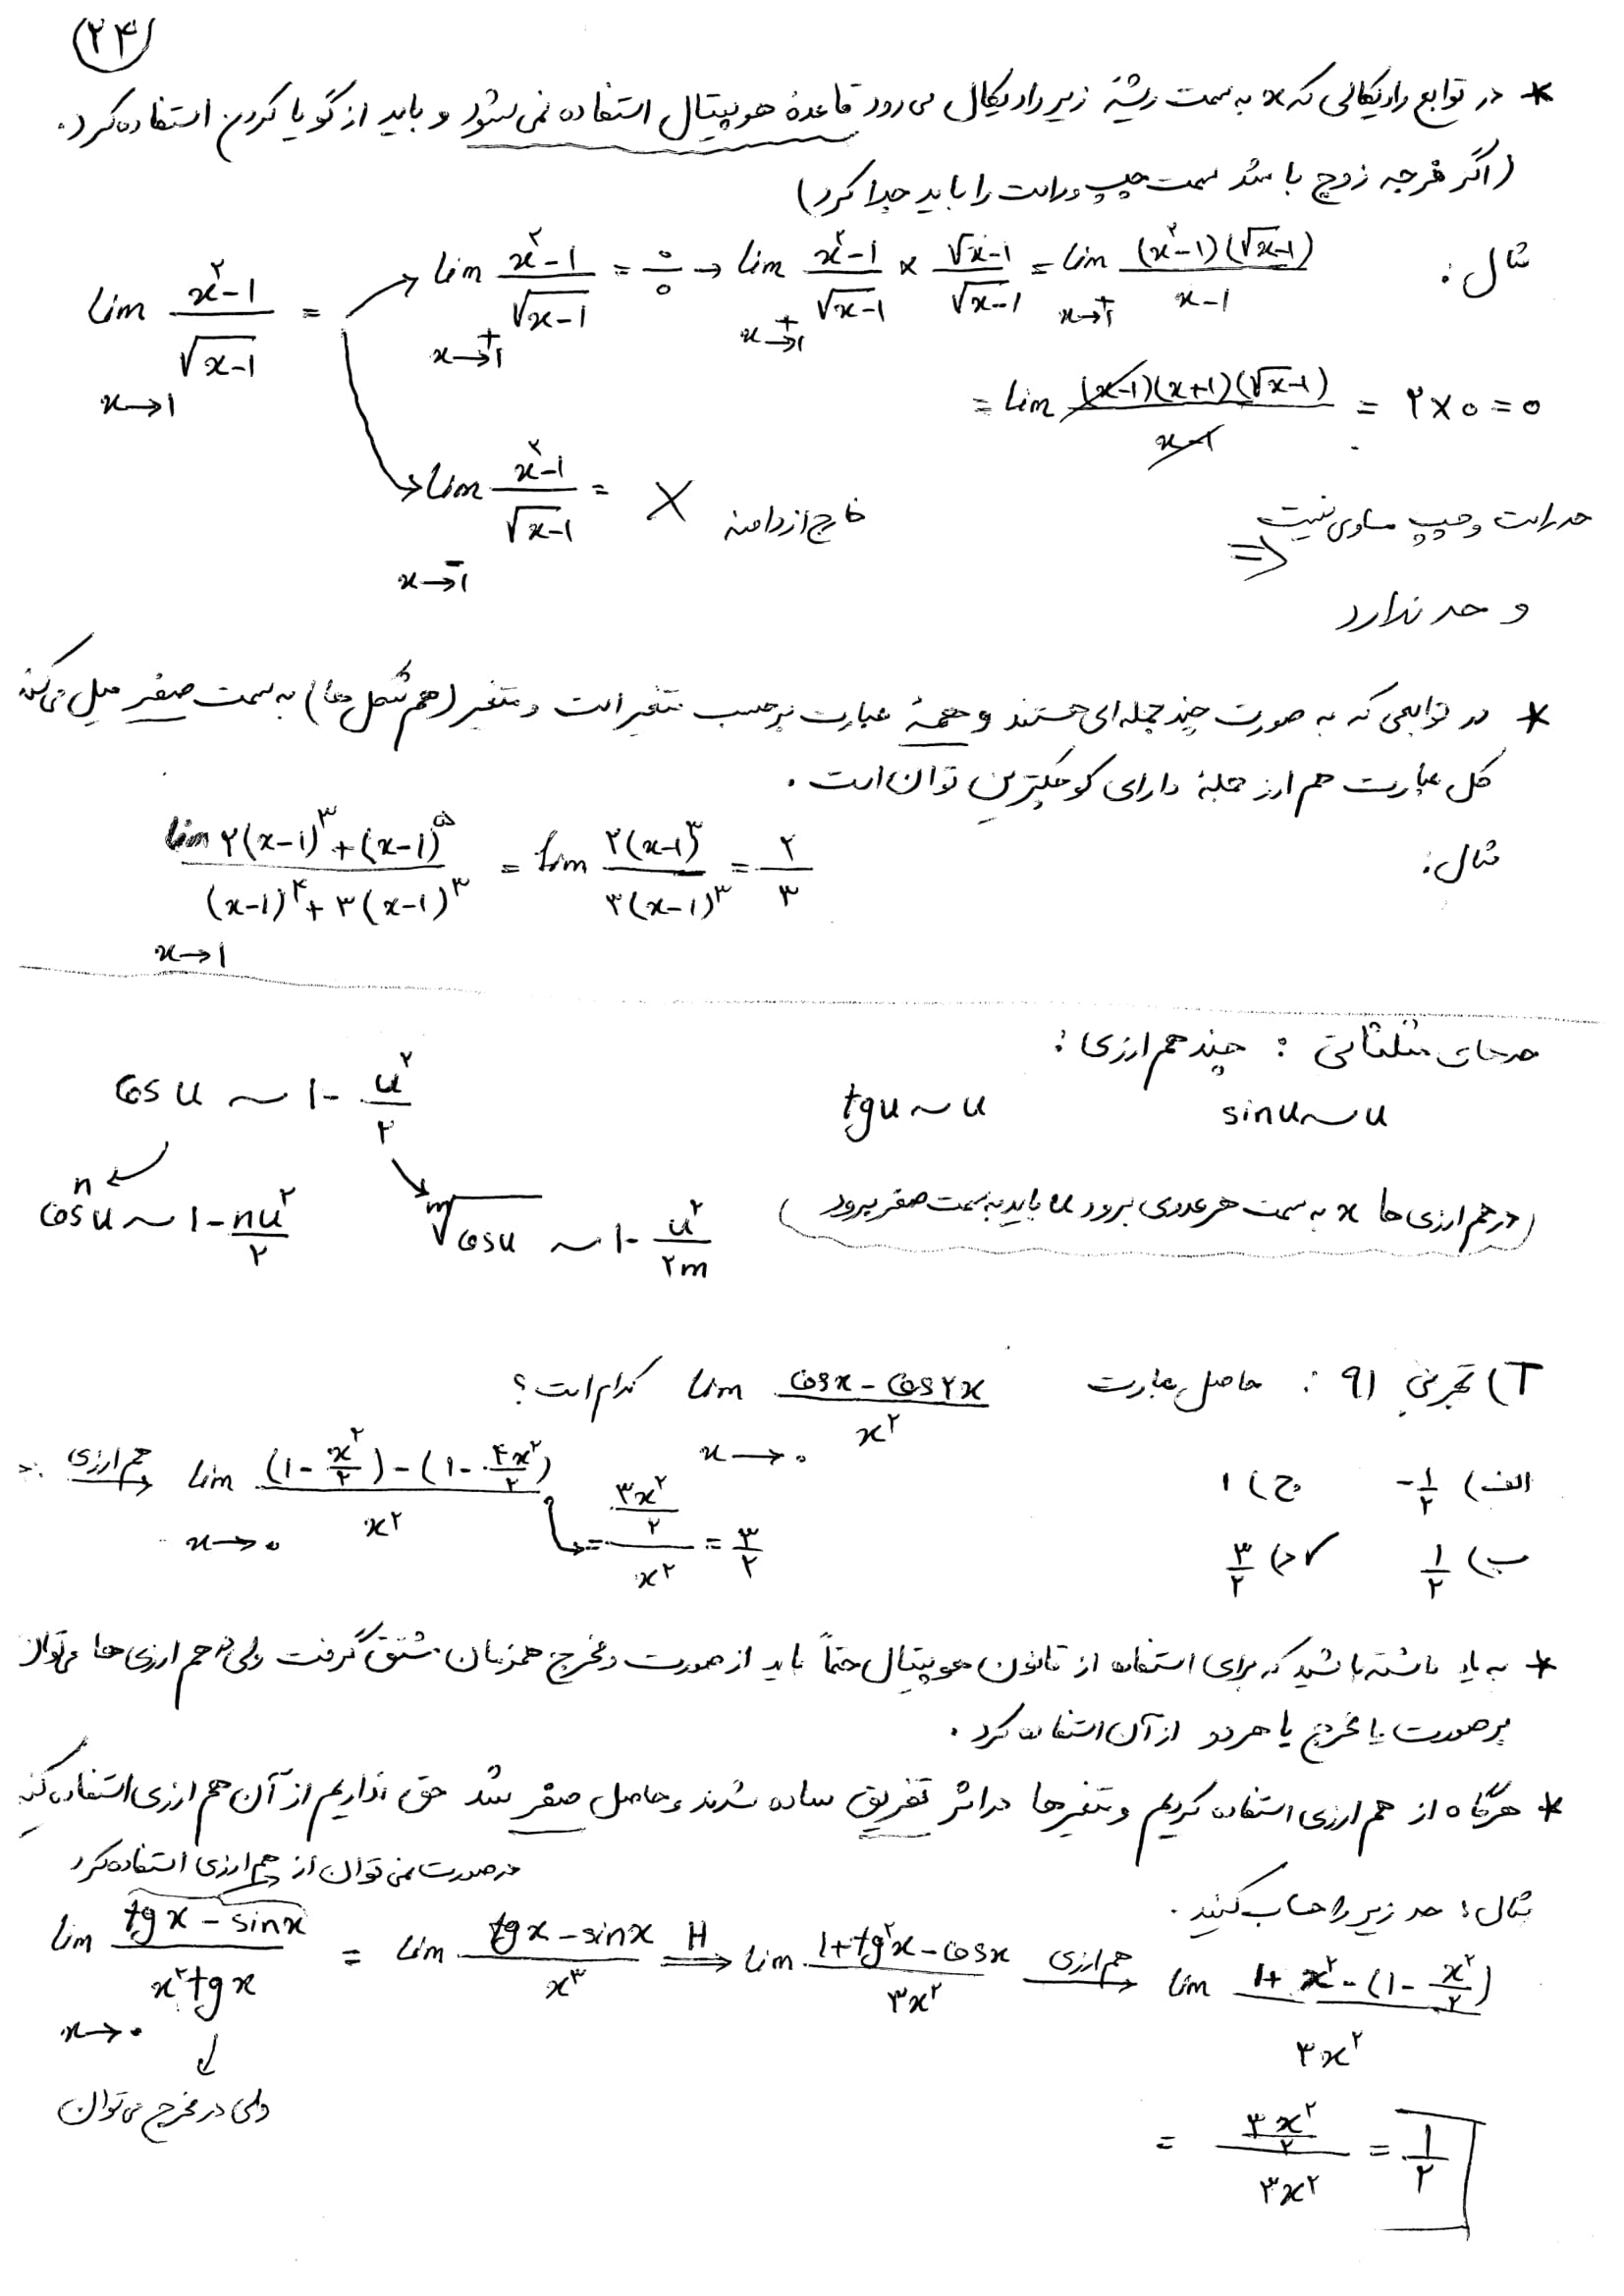 (۲۴)
* در توابع رادیکالی که x به سمت ریشهٔ زیر رادیکال می رود قاعدهٔ هوپیتال استفاده نمی شود و باید از گویا کردن استفاده کرد.
(اگر فرجه زوج باشد سمت چپ و راست را باید جدا کرد)
مثال:
lim x→1 (x^۲-1)/√(x-1) =
→ lim x→1+ (x^۲-1)/√(x-1) = ۰/۰ → lim x→1+ (x^۲-1)/√(x-1) × √(x-1)/√(x-1) = lim x→1+ (x^۲-1)(√(x-1))/(x-1)
= lim (x-1)(x+1)(√(x-1))/(x-1) = ۲×۰ = ۰
→ lim x→1- (x^۲-1)/√(x-1) = X خارج از دامنه
حد راست و چپ مساوی نیست
⇒
و حد ندارد
* در توابعی که به صورت چند جمله ای هستند و همهٔ عبارت برحسب متغیر است و متغیر (هم شکل ها) به سمت صفر میل می کند
کل عبارت هم ارز جملهٔ دارای کوچکترین توان است.
مثال:
lim x→1 (۲(x-1)^۳+(x-1)^۵)/((x-1)^۴+۳(x-1)^۳) = lim ۲(x-1)^۳/۳(x-1)^۳ = ۲/۳
حدهای مثلثاتی : چند هم ارزی :
sinu ~ u tgu ~ u cosu ~ 1-u^۲/۲
(در هم ارزی ها x به سمت هر عددی برود u باید به سمت صفر برود)
m√cosu ~ 1-u^۲/۲m
cos^n u ~ 1-nu^۲/۲
T) تجربی ۹۱ : حاصل عبارت lim x→۰ (cosx-cos۲x)/x^۲ کدام است؟
الف) -۱/۲ ج) ۱
ب) ۱/۲ د) ۳/۲ ✓
هم ارزی → lim x→۰ ((1-x^۲/۲)-(1-۴x^۲/۲))/x^۲ = (۳x^۲/۲)/x^۲ = ۳/۲
* به یاد داشته باشید که برای استفاده از قانون هوپیتال حتماً باید از صورت و مخرج همزمان مشتق گرفت ولی در هم ارزی ها می توان
بر صورت یا مخرج یا هر دو از آن استفاده کرد.
* هرگاه از هم ارزی استفاده کردیم و متغیرها در اثر تفریق ساده شدند و حاصل صفر شد حق نداریم از آن هم ارزی استفاده کنیم
در صورت نمی توان از هم ارزی استفاده کرد
مثال: حد زیر را حساب کنید.
lim x→۰ (tgx-sinx)/(x^۲tgx) = lim (tgx-sinx)/x^۳ H⇒ lim (1+tg^۲x-cosx)/۳x^۲ هم ارزی → lim (1+x^۲-(1-x^۲/۲))/۳x^۲
ولی در مخرج می توان
= (۳x^۲/۲)/۳x^۲ = ۱/۲